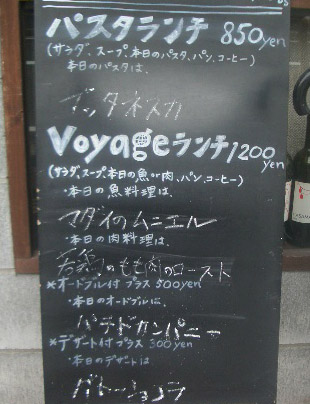 パスタランチ 850yen
(サラダ、スープ、本日のパスタ、パン、コーヒー)
本日のパスタは、
プッタネスカ
Voyageランチ1200yen
(サラダ、スープ、本日の魚or肉、パン、コーヒー)
・本日の魚料理は、
マダイのムニエル
・本日の肉料理は、
若鶏のもも肉のロースト
*オードブル付 プラス 500yen
・本日のオードブルに、
パテドカンパニー
*デザート付 プラス 300yen
・本日のデザートは
ガトーショコラ